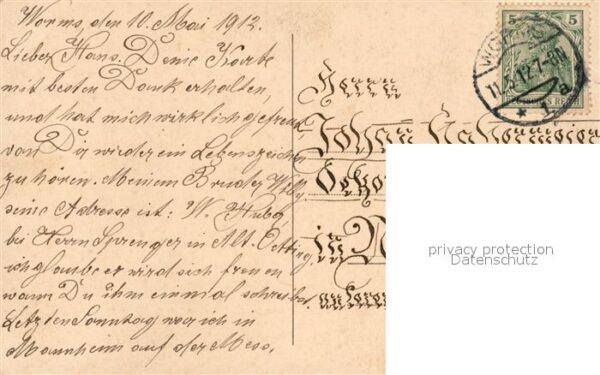 Worms den 10. Mai 1912.
Lieber Hans. Deine Karte
mit besten Dank erhalten,
und hat mich wirklich gefreut
von Dir wieder ein Lebenszeichen
zu hören. Meinem Bruder Willy
seine Adresse ist: W. Huba,
bei Herrn Sprenger in Alt. Oetting,
ich glaube er wird sich freuen
wann Du ihm einmal schreibst
Letzten Sonntag war ich in
Mannheim auf der Mess.
5 5
WORMS
11.5.12.7-8N
* 1a
Herrn
Johan
in
privacy protection
Datenschutz